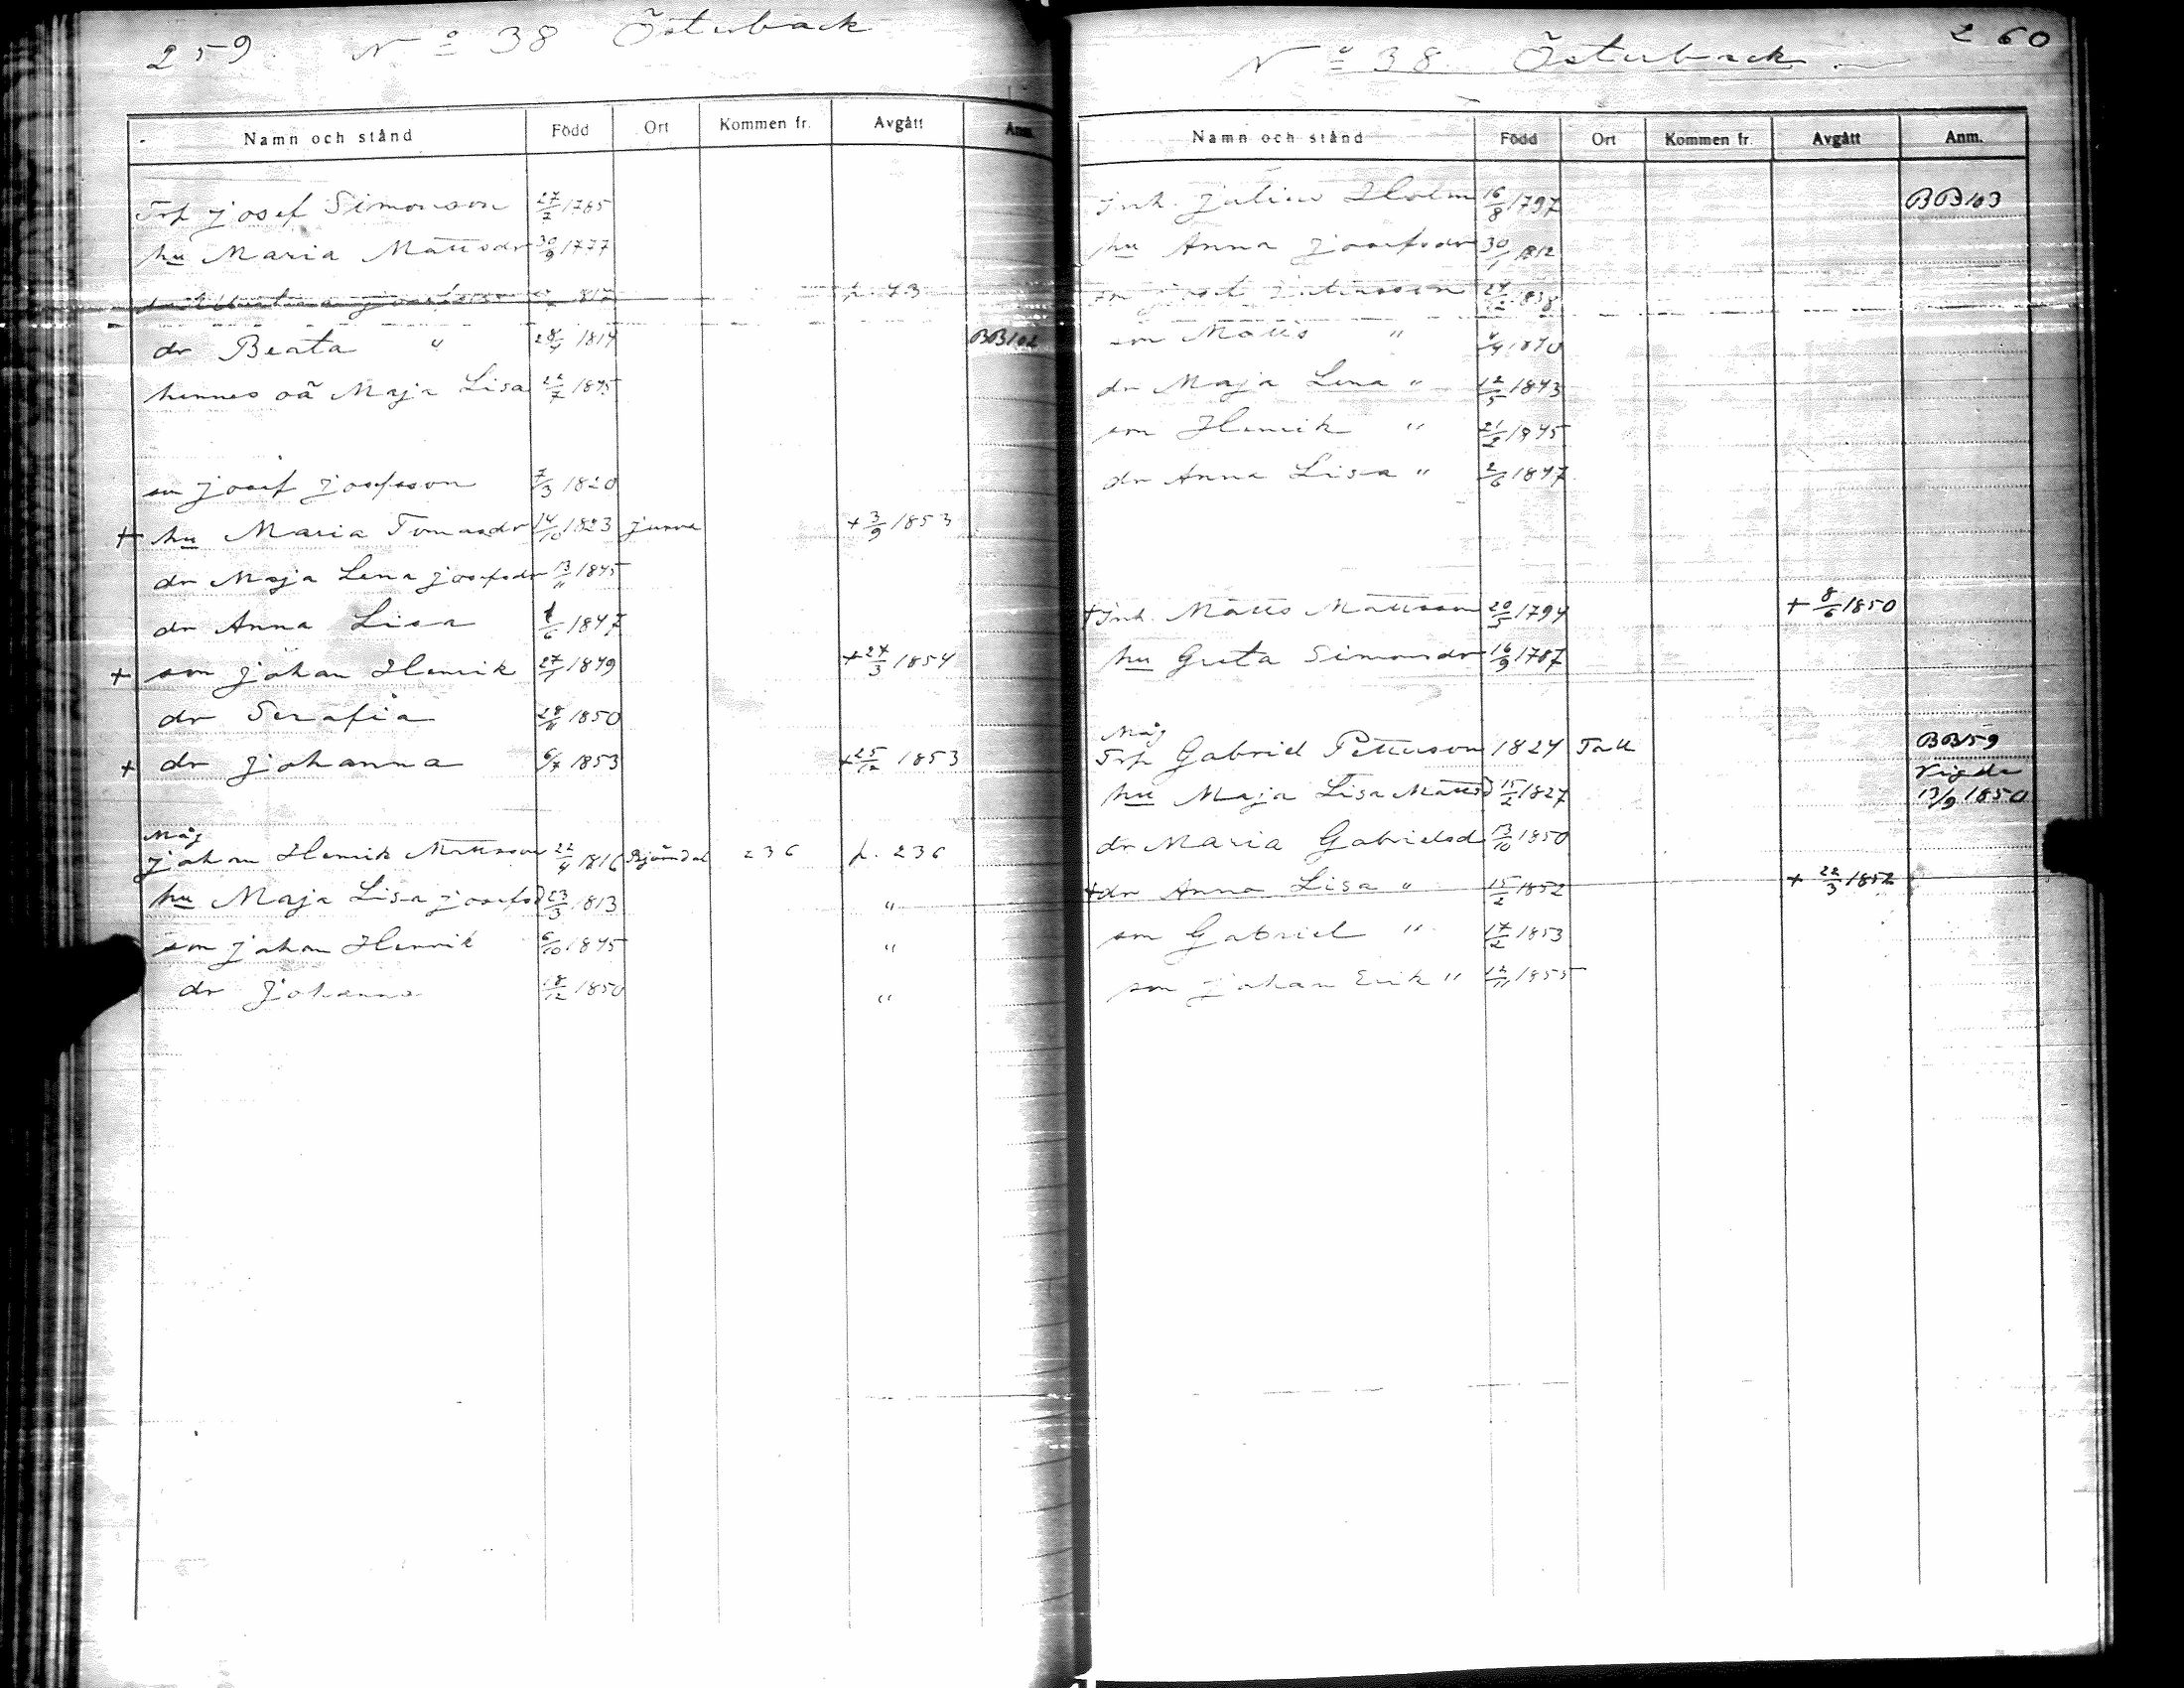 259. No 38 Österback
Namn och stånd Född Ort Kommen fr. Avgått Anm.
Trp josef Simonson 27/7 1785
hu Maria Mattsdr 30/9 1777
1817 p. 73
dr Beata " 28/4 1814 BB102
hennes oä Maja Lisa 22/7 1845
sn josef josefsson 7/3 1820
+ hu Maria Tomasdr 14/10 1823 jurva + 3/9 1853
dr Maja Lena josefsdr 13/11 1845
dr Anna Lisa 1/6 1847
+ son johan Henrik 27/1 1849 + 24/3 1854
dr Serafia 28/11 1850
+ dr johanna 6/7 1853 + 25/12 1853
Måg
johan Henrik Mattsson 22/4 1816 Bjürndal 236 p. 236
hu Maja Lisa josefsd 23/3 1813 "
son johan Henrik 6/10 1845 "
dr johanna 18/12 1850 "
No 38 Österback 260
Namn och stånd Född Ort Kommen fr. Avgått Anm.
Inh. julius Holm 16/8 1797 BB103
hu Anna josefsdr 30/1 1812
sn josef juliusson 24/2 1838
son Matts " /4 1840
dr Maja Lena " 12/5 1843
son Henrik " 21/2 1845
dr Anna Lisa " 2/6 1847
+ Inh. Matts Mattsson 20/5 1794 + 8/6 1850
hu Greta Simonsdr 16/9 1787
Måg
Trp Gabriel Petterson 1824 Tall BB159
Vigda
hu Maja Lisa Mattsd 15/2 1827 13/9 1850
dr Maria Gabrielsd 13/10 1850
+ dr Anna Lisa " 15/2 1852 + 22/3 1852
son Gabriel " 17/2 1853
son johan Erik " 12/11 1855